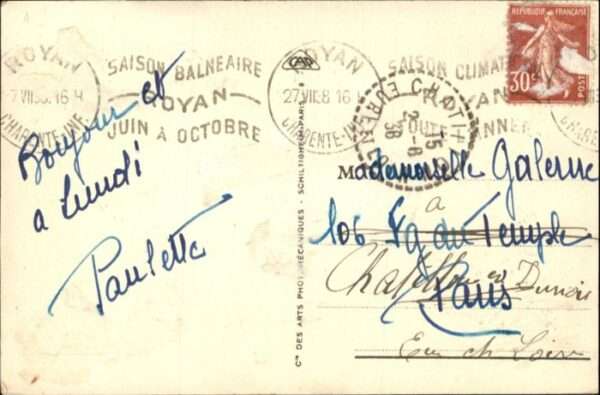 ROYAN
27 VII 38. 16 H
CHARENTE-INF
SAISON BALNEAIRE
ROYAN
JUIN À OCTOBRE
ROYAN
27 VII 38 16
CHARENTE-INF
SAISON CLIMAT
YAN
TOUTE
ANNEE
REPUBLIQUE FRANÇAISE
30c
EURE
38
Bonjour et
a Lundi
Paulette
Cie DES ARTS PHOTOMÉCANIQUES - SCHILTIGHEIM-PARIS
Mademoiselle Galerne
a
106 Fg du Temple
Paris
en Dunois
Eure et Loir